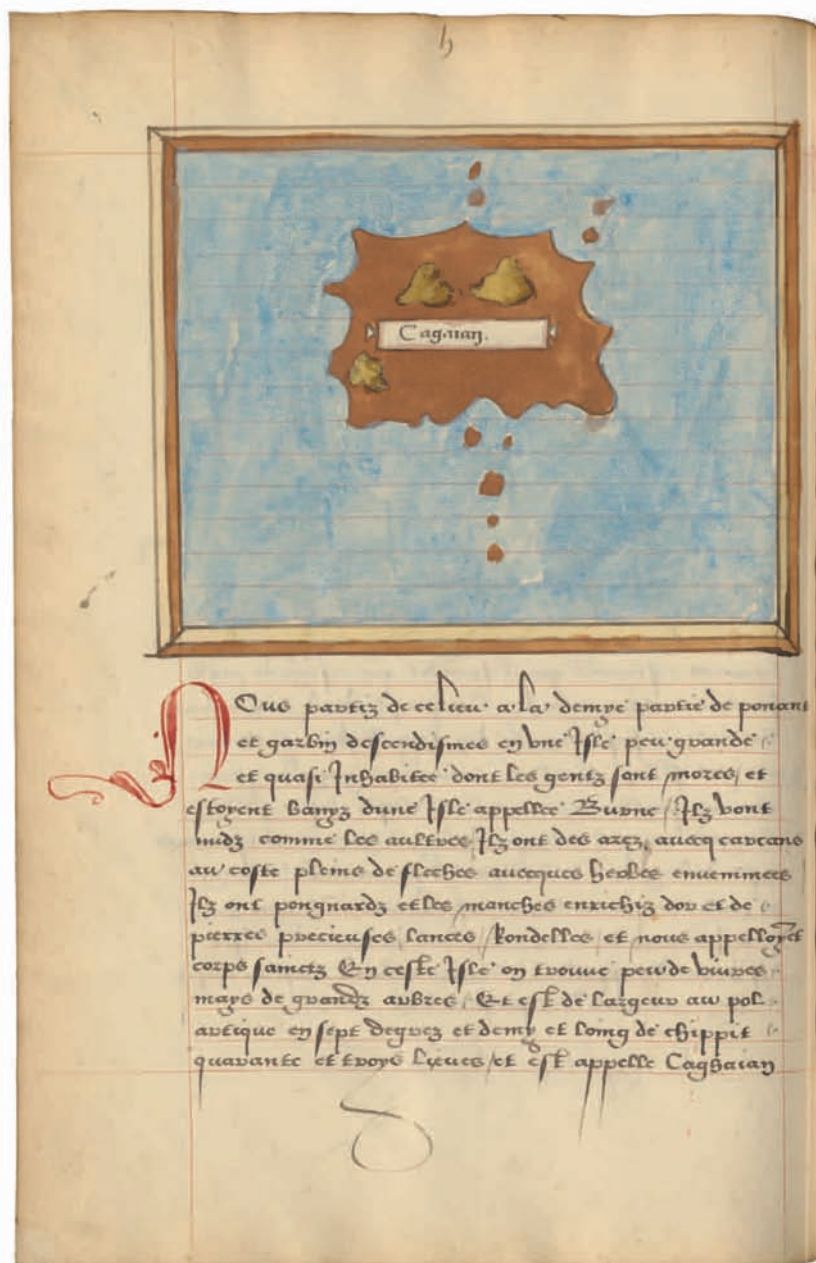 h
Cagaian.
NOus partiz de ce lieu a la demye partie de ponant
et garbin descendismes en vne Isle peu grande
et quasi Inhabitee dont les gentz sont mores / et
estoyent banyz dune Isle appellee Burne / Ilz vont
nudz comme les aultres / Ilz ont des arcz, auecq carcans
au coste pleins de fleches auecques herbes enuemmees
Ilz ont pongnardz et les manches enrichiz dor et de
pierres precieuses / lances / Rondelles / et nous appelloyēt
corps sainctz En ceste Isle on trouue peu de viures
mays de grandz arbres / Et est de largeur au pol
artique en sept degrez et demy et loing de chippit
quarante et troys lieues / et est appelle Caghaian